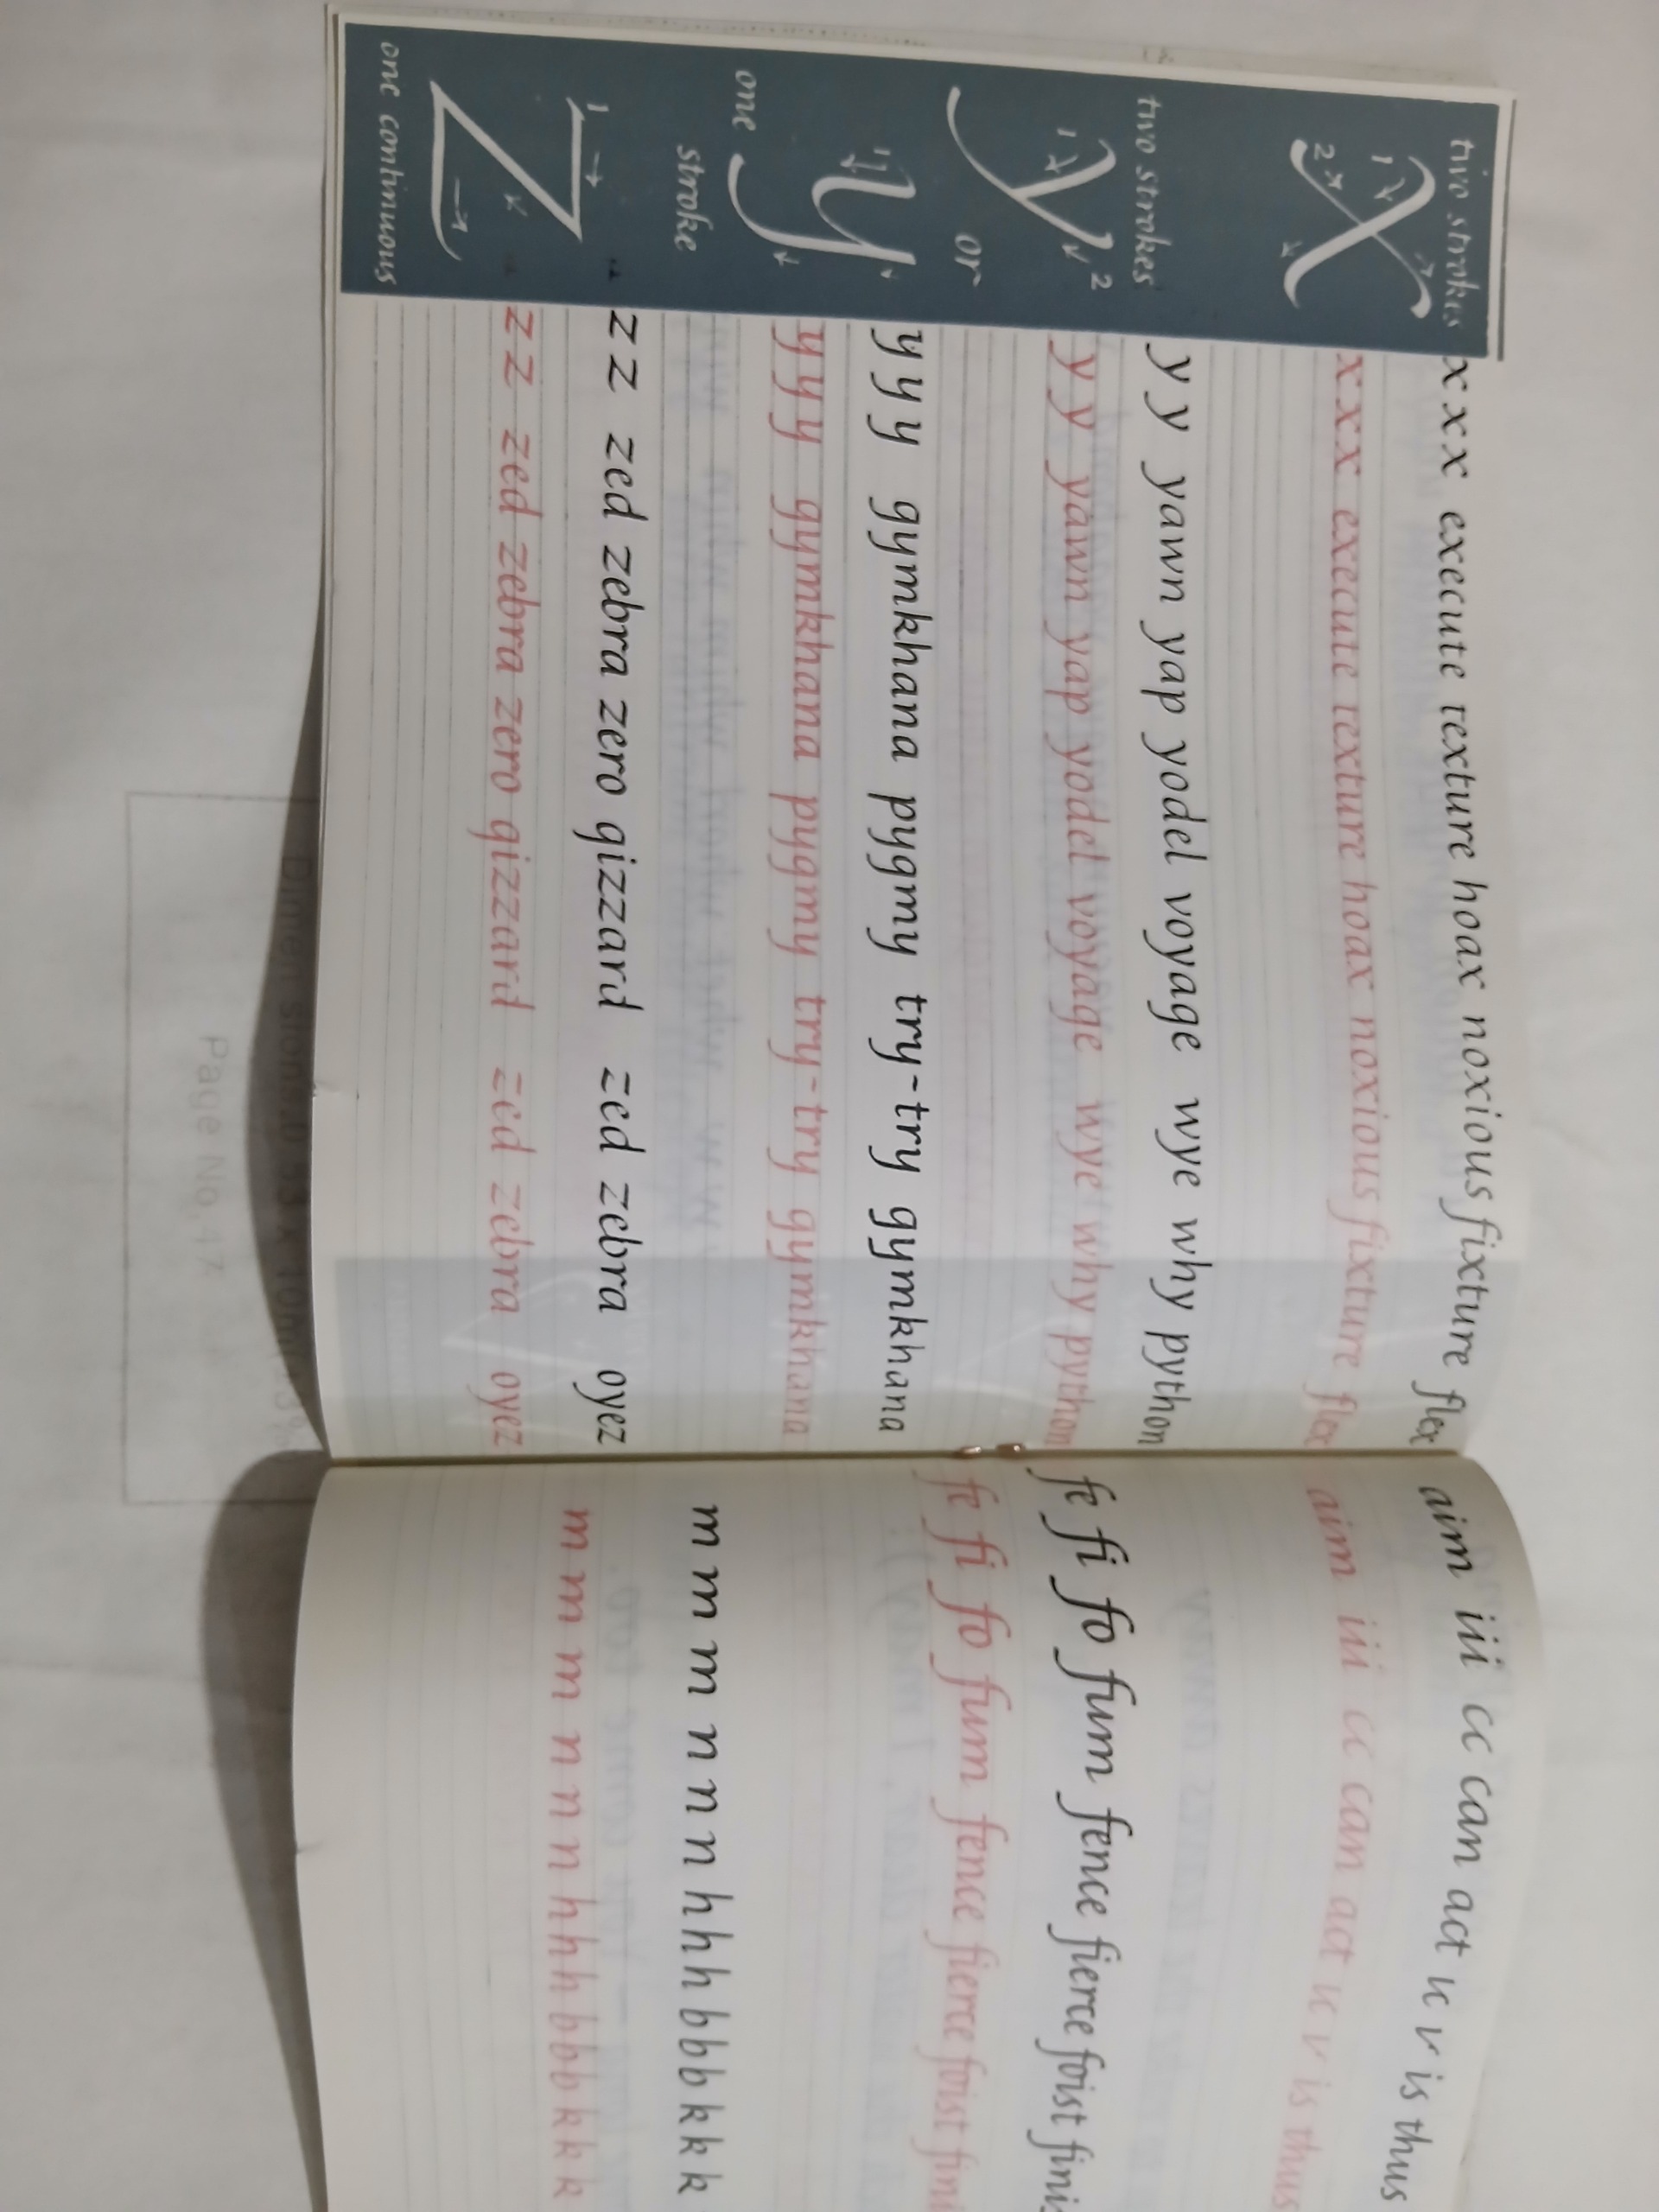 two strokes
1 2
x x x execute texture hoax noxious fixture flex
x x x execute texture hoax noxious fixture flex
two strokes
1 y 2
y y yawn yap yodel voyage wye why python
y y yawn yap yodel voyage wye why python
or
1 y
y y y gymkhana pygmy try-try gymkhana
y y y gymkhana pygmy try-try gymkhana
one stroke
1 z
z z zed zebra zero gizzard zed zebra oyez
z z zed zebra zero gizzard zed zebra oyez
one continuous
aim iii cc can act u v is thus
aim iii cc can act u v is thus
fe fi fo fum fence fierce foist
fe fi fo fum fence fierce foist
m m m m n n n h h h b b b k k k
m m m m n n n h h h b b b k k k
Page No. 47